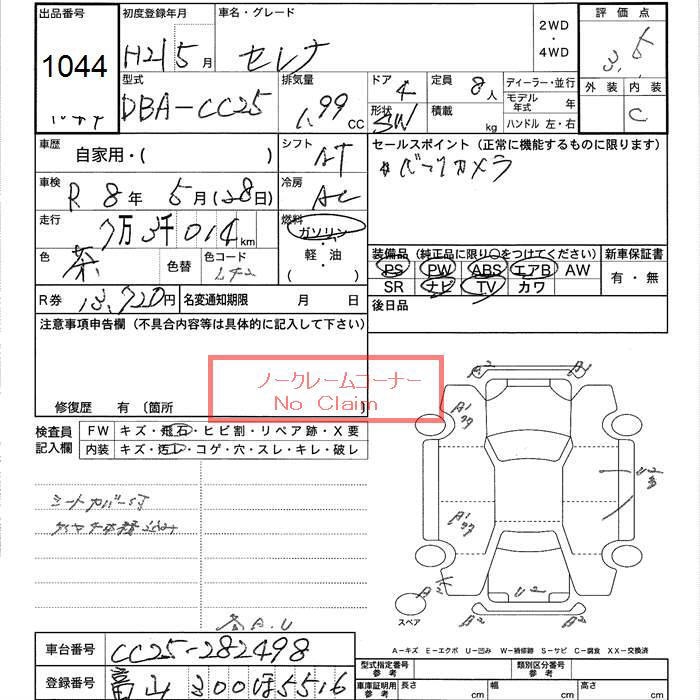 出品番号 初度登録年月 車名・グレード 2WD ・ 4WD 評価点
1044 H21 5月 セレナ 3.5
型式 排気量 ドア 4 定員 8人 ディーラー・並行 外装 内装
DBA-CC25 1.99 CC 形状 SW 積載 kg モデル年式 年 C
ハンドル 左・右
車歴 自家用・( ) シフト AT セールスポイント (正常に機能するものに限ります)
車検 R 8年 5月(28日) 冷房 AC バックカメラ
走行 7万3千014km 燃料 ガソリン・軽・油 ( )
色 茶 色替 色コード 装備品 (純正品に限り○をつけてください) 新車保証書
PS PW ABS エアB AW 有・無
SR ナビ TV カワ
R券 13,720円 名変通知期限 月 日 後日品
注意事項申告欄 (不具合内容等は具体的に記入して下さい)
ノークレームコーナー
No Claim
修復歴 有 〔箇所 〕
検査員記入欄 FW キズ・飛石・ヒビ割・リペア跡・X要
内装 キズ・汚レ・コゲ・穴・スレ・キレ・破レ
シートカバー付
A2 A2
A1 キズ
U2
A1 キズ
U2
スペア
A-キズ E-エクボ U-凹み W-補修跡 S-サビ C-腐食 XX-交換済
車台番号 CC25-282498
型式指定番号 参考 類別区分番号 参考
登録番号 富山 300ほ5516
車庫証明用 参考 長さ cm 幅 cm 高さ cm